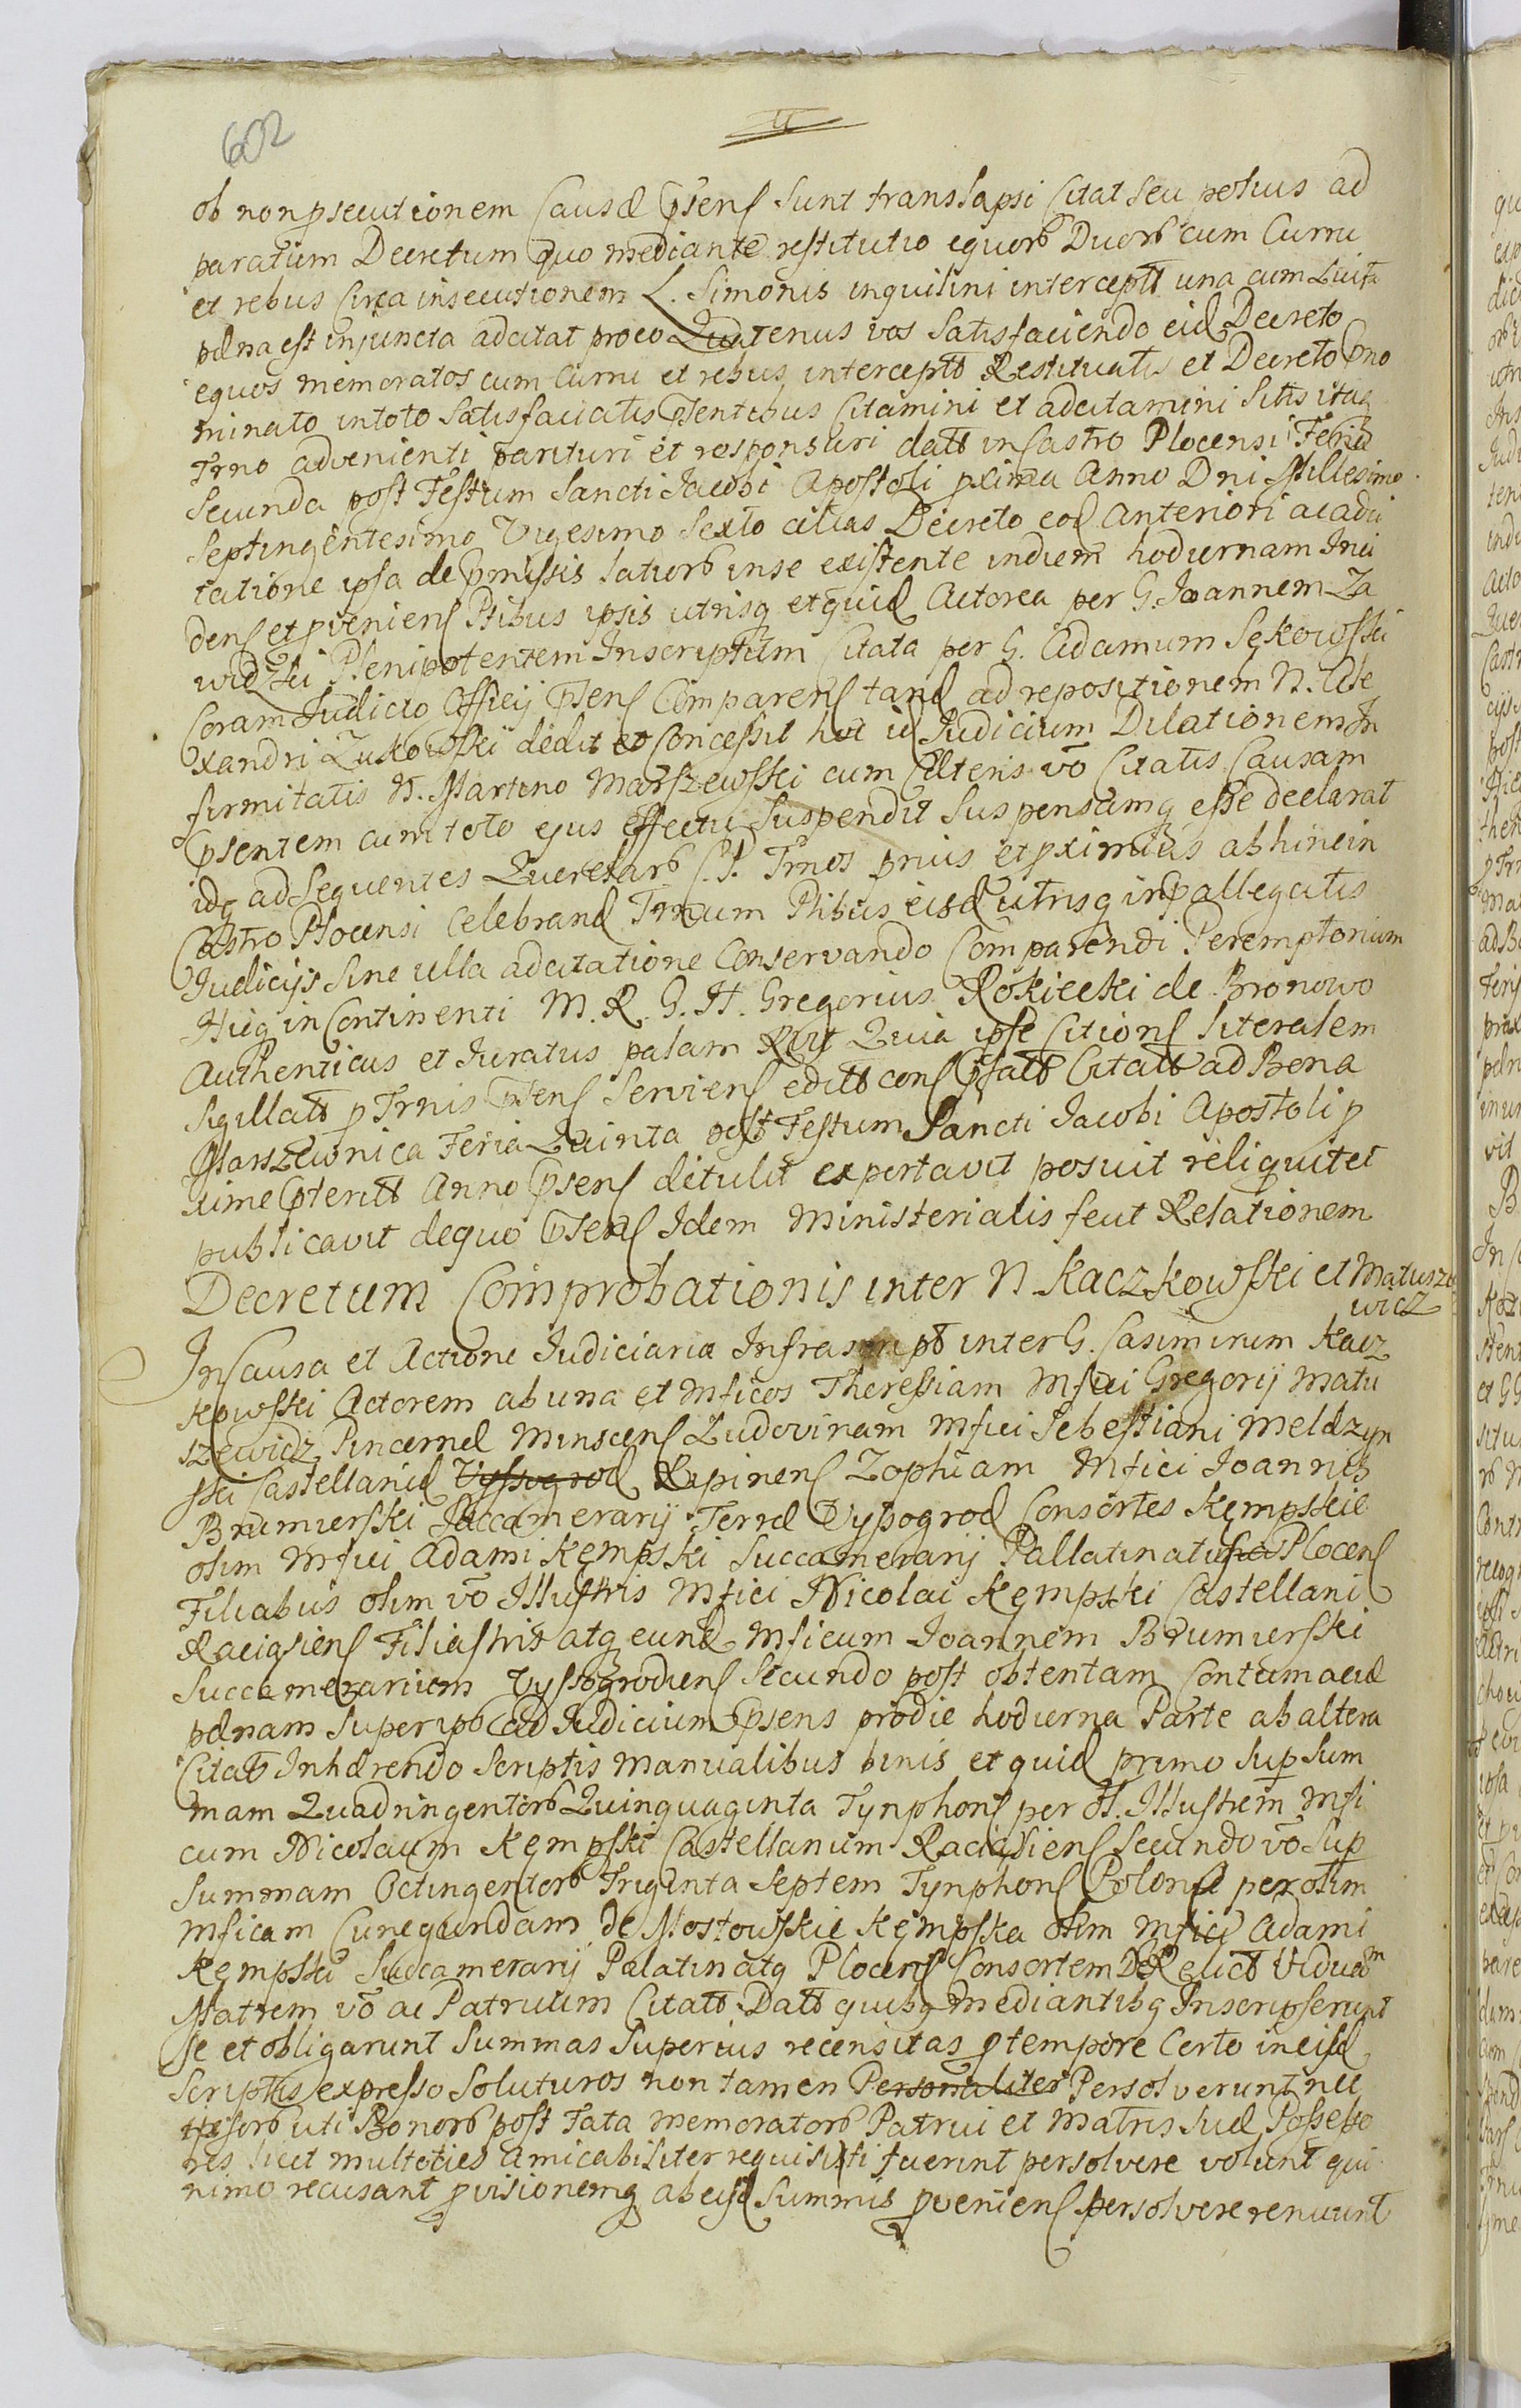 602
ob non psecutionem Causæ Psens sunt translapsi Citat seu potius ad
paratum Decretum quo mediante restitutio equorb Duorb cum Curru
et rebus Circa insecutionem L. Simonis inquilini interceptt una cum Luita
pæna est injuncta adcitat proeo Quatenus vos satisfaciendo eid Decreto
equos memoratos cum Curru et rebus interceptt Restituatis et Decreto Pno
minato intoto satisfaciatis Psentibus Citamini et adcitamini sitis itaq
Trno advenienti parituri et responsuri datt in Castro Plocensi Feria
secunda post Festum Sancti Jacobi Apostoli pxima Anno Dni Millesimo
Septingentesimo Vigesimo Sexto alias Decreto eod anteriori ac adci
tatione ipsa de Pmissis latiorb inse existente indiem hodiernam Inci
dens et pveniens Ptibus ipsis utrisq et quid Actorea per G. Joannem Za
widzki Plenipotentem Inscriptum Citata per G. Adamum Sękowski
Coram Judicio Officij Psens Comparens tand ad repositionem N. Ale
xandri Żukowski dedit et Concessit hoc id Judicium Dilationem In
firmitatis N. Martino Marszewski cum Cæteris vo Citatis Causam
Psentem cum toto ejus effectu suspendit suspensamq esse declarat
idq ad sequentes Querelarb C. P. Trnos prius et pximius abhincin
Castro Plocensi Celebrand Trnum Ptibus eisd utrisq in pallegatis
Judicijs sine ulla adcitatione Conservando Comparendi Peremptorium
Hicq in Continenti M. R. G. H. Gregorius Rokicki de Bronowo
Authenticus et Juratus palam Rcvt Quia ipse Citions literalem
Sigillatt p Trnis Psens Serviens edittcons Pfatt Citatt ad Bona
Marszewnica Feria Quinta post Festum Sancti Jacobi Apostoli p
xime Pteritt Anno Psens detulit exportavit posuit reliquit et
publicavit dequo Psens Idem Ministerialis fecit Relationem
Decretum Comprobationis inter N Kaczkowski et Matusze
wicz
In Causa et Actione Judiciaria Infrascriptb inter G. Casimirum Kacz
kowski Actorem abuna et Mficos Theressiam Mfici Gregorij Matu
szewicz Pincernæ Minscens Ludovinam Mfici Sebestiani Meldzyn
ski Castellanid Vyssogrod Rypinens Zophiam Mfici Joannis
Brumierski Succamerarij Terræ Vyssogrod Consortes Kempskie
olim Mfici Adami Kempski Succamerarij Pallatinatus Plocens
Filiabus olim vo Illustris Mfici Nicolai Kempski Castellani
Raciąsiens Filiastris atq eund Mficum Joannem Brumierski
Succamerarium Vyssogrodiens Secundo post obtentam Contumaciæ
pænam superipb ad Judicium Psens prodie hodierna Parte ab altera
Citatt Inhærendo Scriptis Manualibus binis et quid primo sup Sum
mam Quadringentorb Quinquaginta Tynphons per ol. Illustrem Mfi
cum Nicolaum Kempski Castellanum Raciąsiens Secundo vo sup
Summam Octingentorb Triginta Septem Tynphons Polond per olim
Mficam Cunegundam de Mostowskie Kempska olim Mfici Adami
Kempski Succamerarij Palatinatq Plocens Consortem DeRelict Viduam
Matrem vo ac Patruum Citatt Datt quibq mediantibq Inscripserunt
se et obligarunt Summas Superius recensitas ptempore Certo in eisd
Scriptis expresso Soluturos non tamen Personaliter Persolverunt nec
ipsorb uti Bonorb post Fata memoratorb Patrui et Matris Suæ Possesso
res licet multoties amicabiliter requisiti fuerint persolvere volunt qui
nimo recusant pvisionemq ab eisd Summis pveniens persolvere renuunt